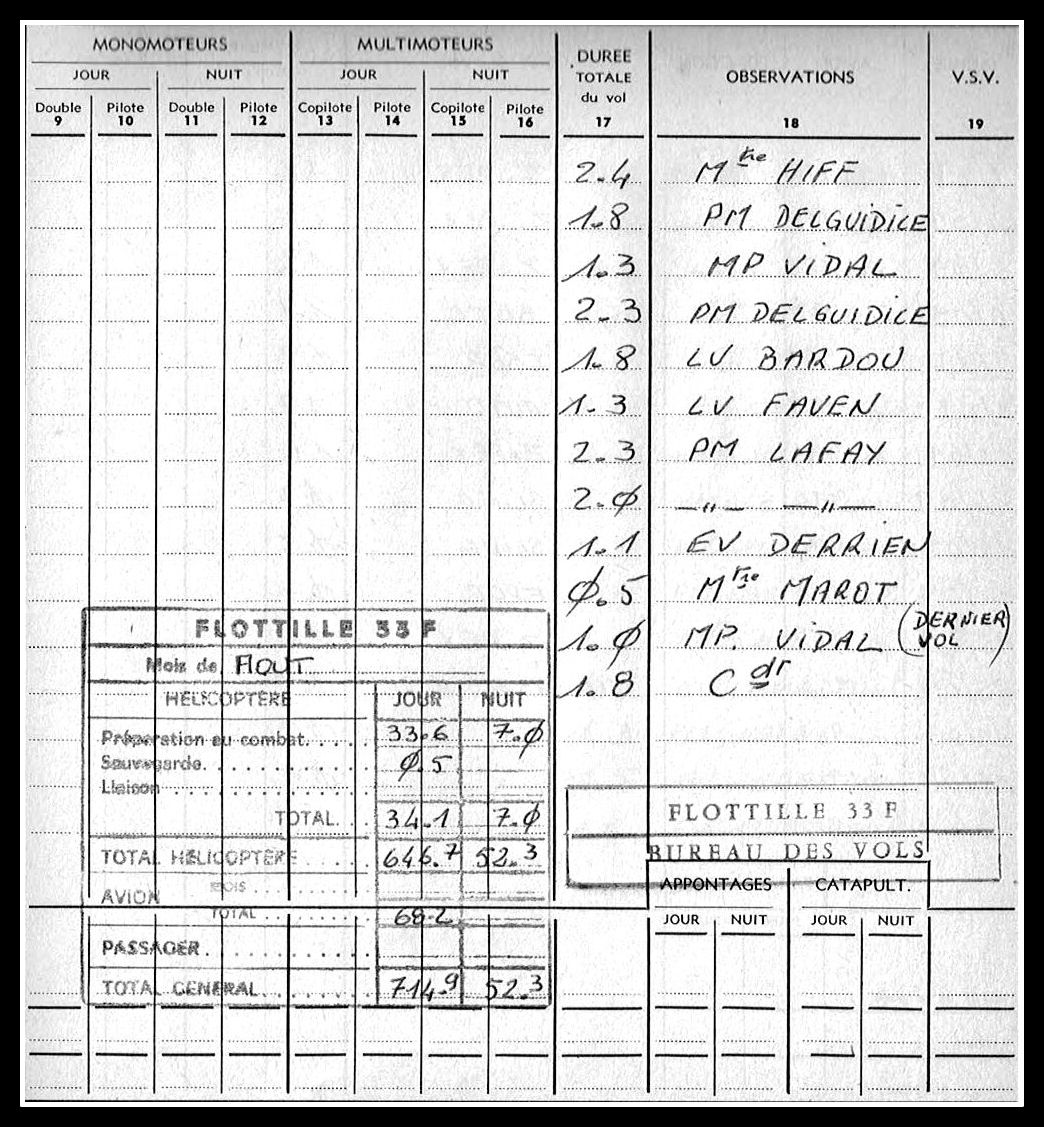 MONOMOTEURS MULTIMOTEURS DUREE TOTALE du vol OBSERVATIONS V.S.V.
JOUR NUIT JOUR NUIT
Double Pilote Double Pilote Copilote Pilote Copilote Pilote
9 10 11 12 13 14 15 16 17 18 19
2.4 Mtre HIFF
1.8 PM DELGUIDICE
1.3 MP VIDAL
2.3 PM DELGUIDICE
1.8 LV BARDOU
1.3 LV FAVEN
2.3 PM LAFAY
2.Ø —"— —"—
1.1 EV DERRIEN
Ø.5 Mtre MAROT
1.Ø MP. VIDAL (DERNIER VOL)
1.8 Cdr
FLOTTILLE 33 F
Mois de AOUT
HELICOPTÈRE JOUR NUIT
Préparation au combat..... 33.6 7.Ø
Sauvegarde............ Ø.5
Liaison...............
TOTAL... 34.1 7.Ø
TOTAL HÉLICOPTÈRE..... 646.7 52.3
AVION
MOIS........
TOTAL........ 68.2
PASSAGER............
TOTAL GENERAL....... 714.9 52.3
FLOTTILLE 33 F
BUREAU DES VOLS
APPONTAGES CATAPULT.
JOUR NUIT JOUR NUIT